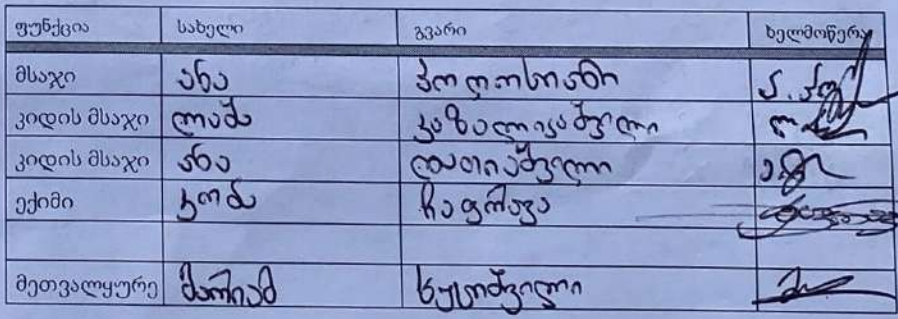 ფუნქცია სახელი გვარი ხელმოწერა
მსაჯი ანა პოღოსიანი
კიდის მსაჯი ლაშა კობალიკაშვილი
კიდის მსაჯი ანა ლათიაშვილი
ექიმი ჩაფრავა
მეთვალყურე მარიამ ხუციშვილი